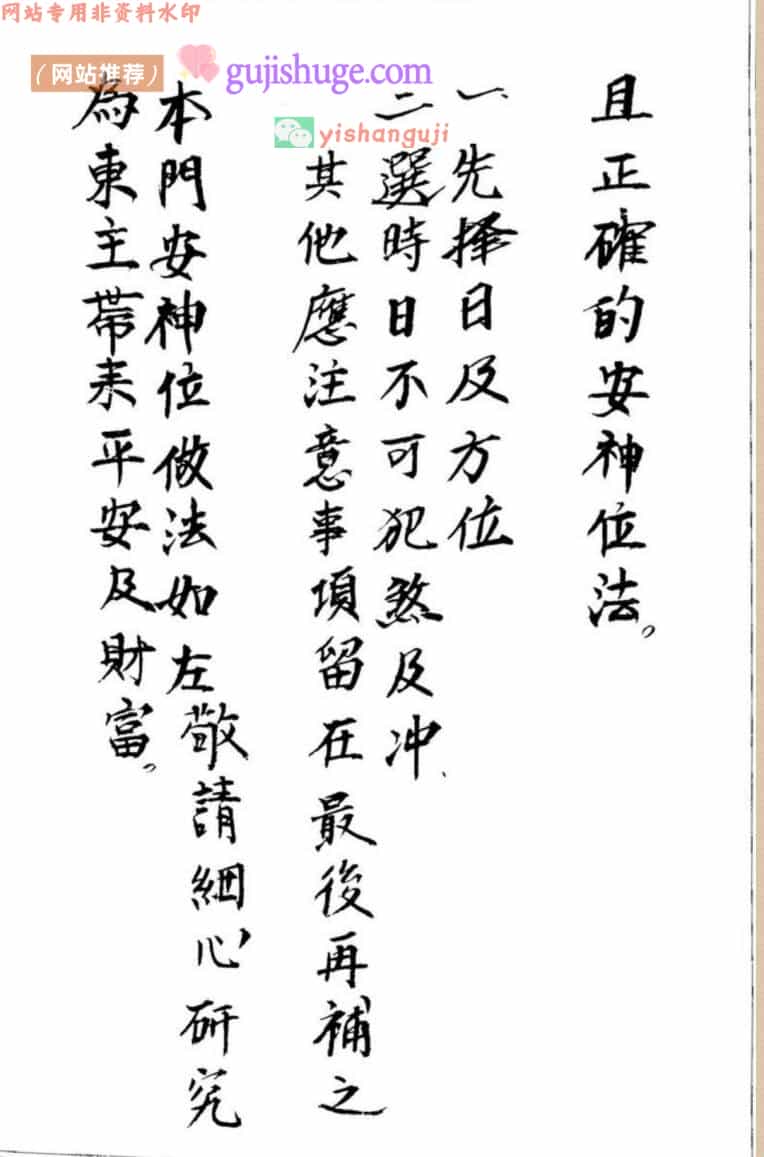 网站专用非资料水印
（网站推荐）
gujishuge.com
yishanguji
且正確的安神位法。
一、先擇日及方位
二、選時日不可犯煞及冲、
其他應注意事項留在最後再補之
本門安神位做法如左敬請細心研究
為東主帶来平安及財富。